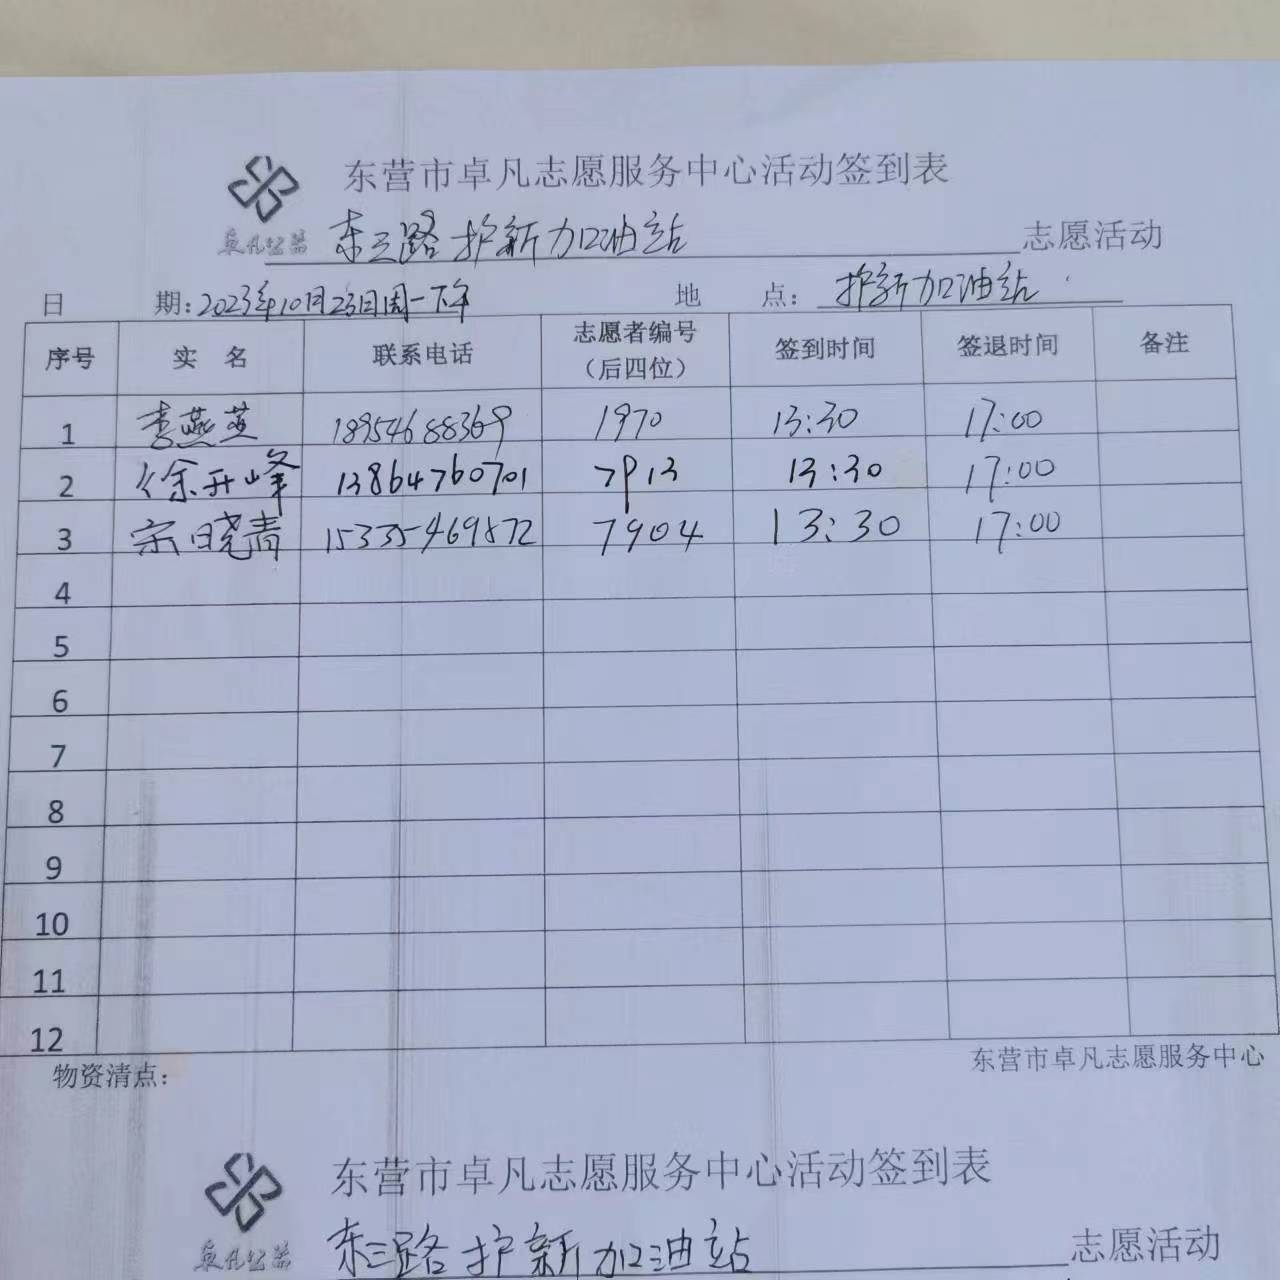 东营市卓凡志愿服务中心活动签到表
卓凡公益 东三路护新加油站 志愿活动
日 期：2023年10月23日周一下午 地 点：护新加油站
序号 实 名 联系电话 志愿者编号（后四位） 签到时间 签退时间 备注
1 李燕英 18954688369 1970 13:30 17:00
2 徐开峰 13864760701 7913 13:30 17:00
3 宋晓青 15335469872 7904 13:30 17:00
4
5
6
7
8
9
10
11
12
物资清点： 东营市卓凡志愿服务中心
东营市卓凡志愿服务中心活动签到表
卓凡公益 东三路护新加油站 志愿活动